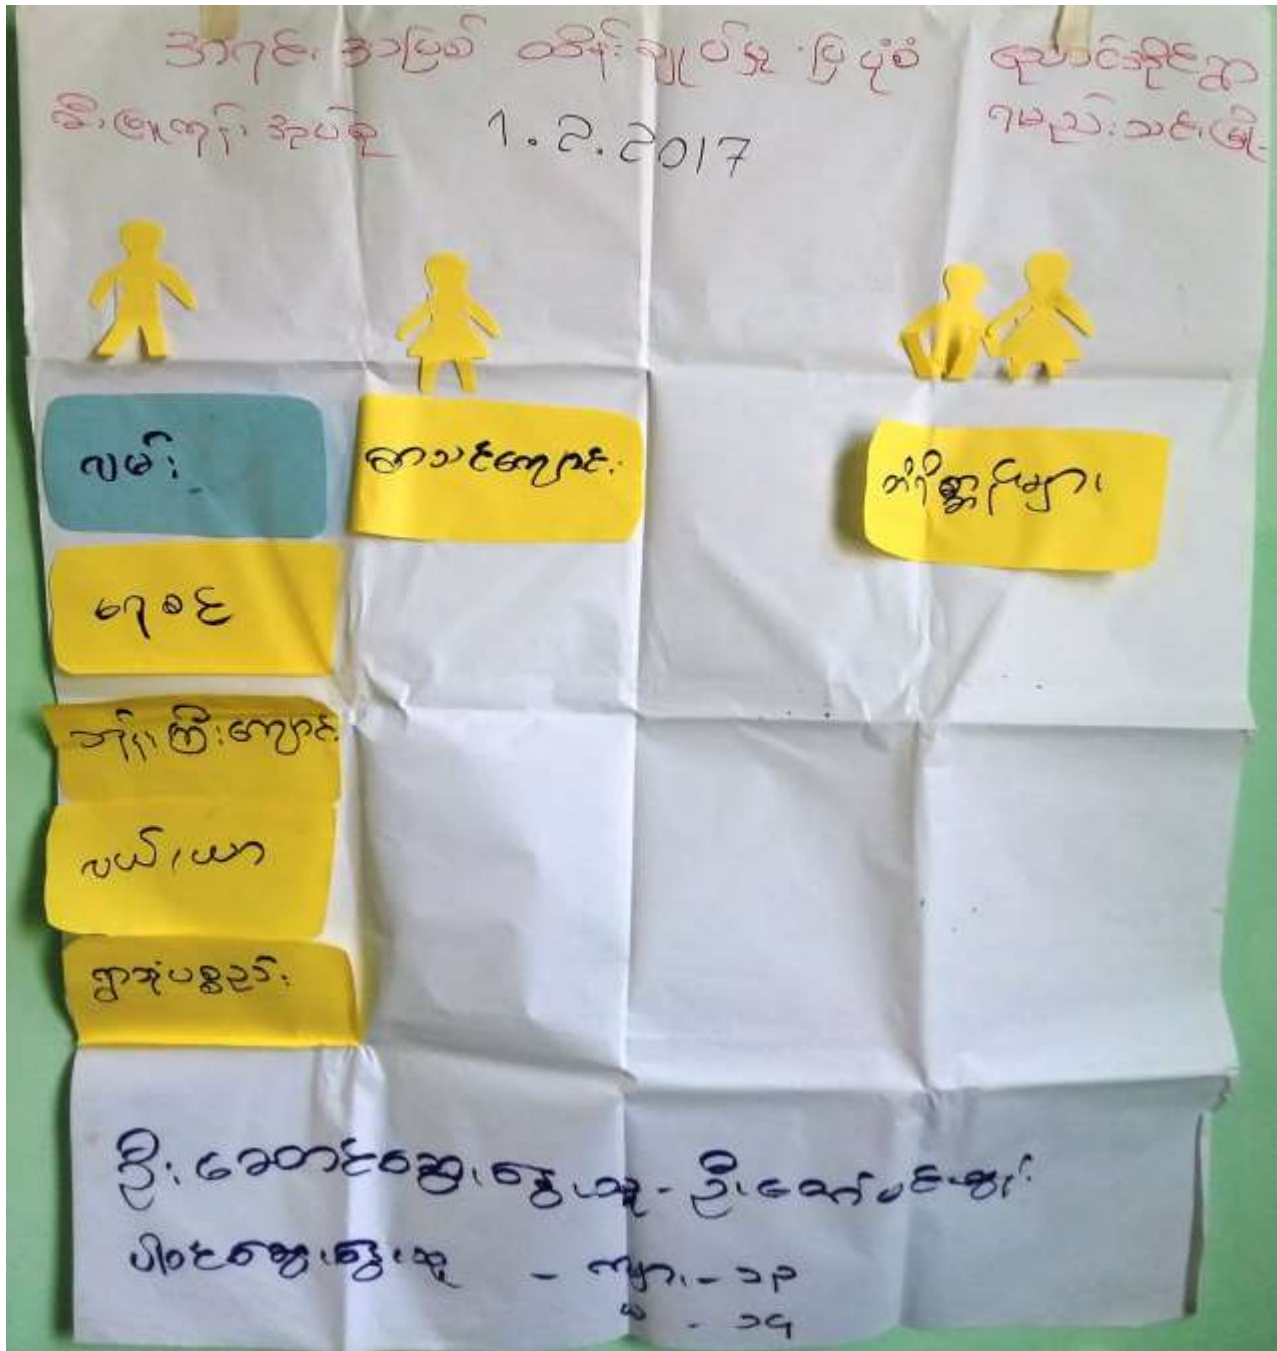 အရင်းအမြစ် ထိန်းချုပ်မှု ပြပုံစံ ညောင်ဆိုင်ရွာ
အုပ်စု 1.2.2017 ရမည်းသင်းမြို့
လမ်း
စာသင်ကျောင်း
တိရိစ္ဆာန်များ
ရေစင်
ဘုန်းကြီးကျောင်း
လယ်၊ယာ
ရွာသုံးပစ္စည်း
ဦးဆောင်ဆွေးနွေးသူ - ဦးဇော်မင်းထွန်း
ပါဝင်ဆွေးနွေးသူ - ကျား - ၁၃
မ - ၁၄